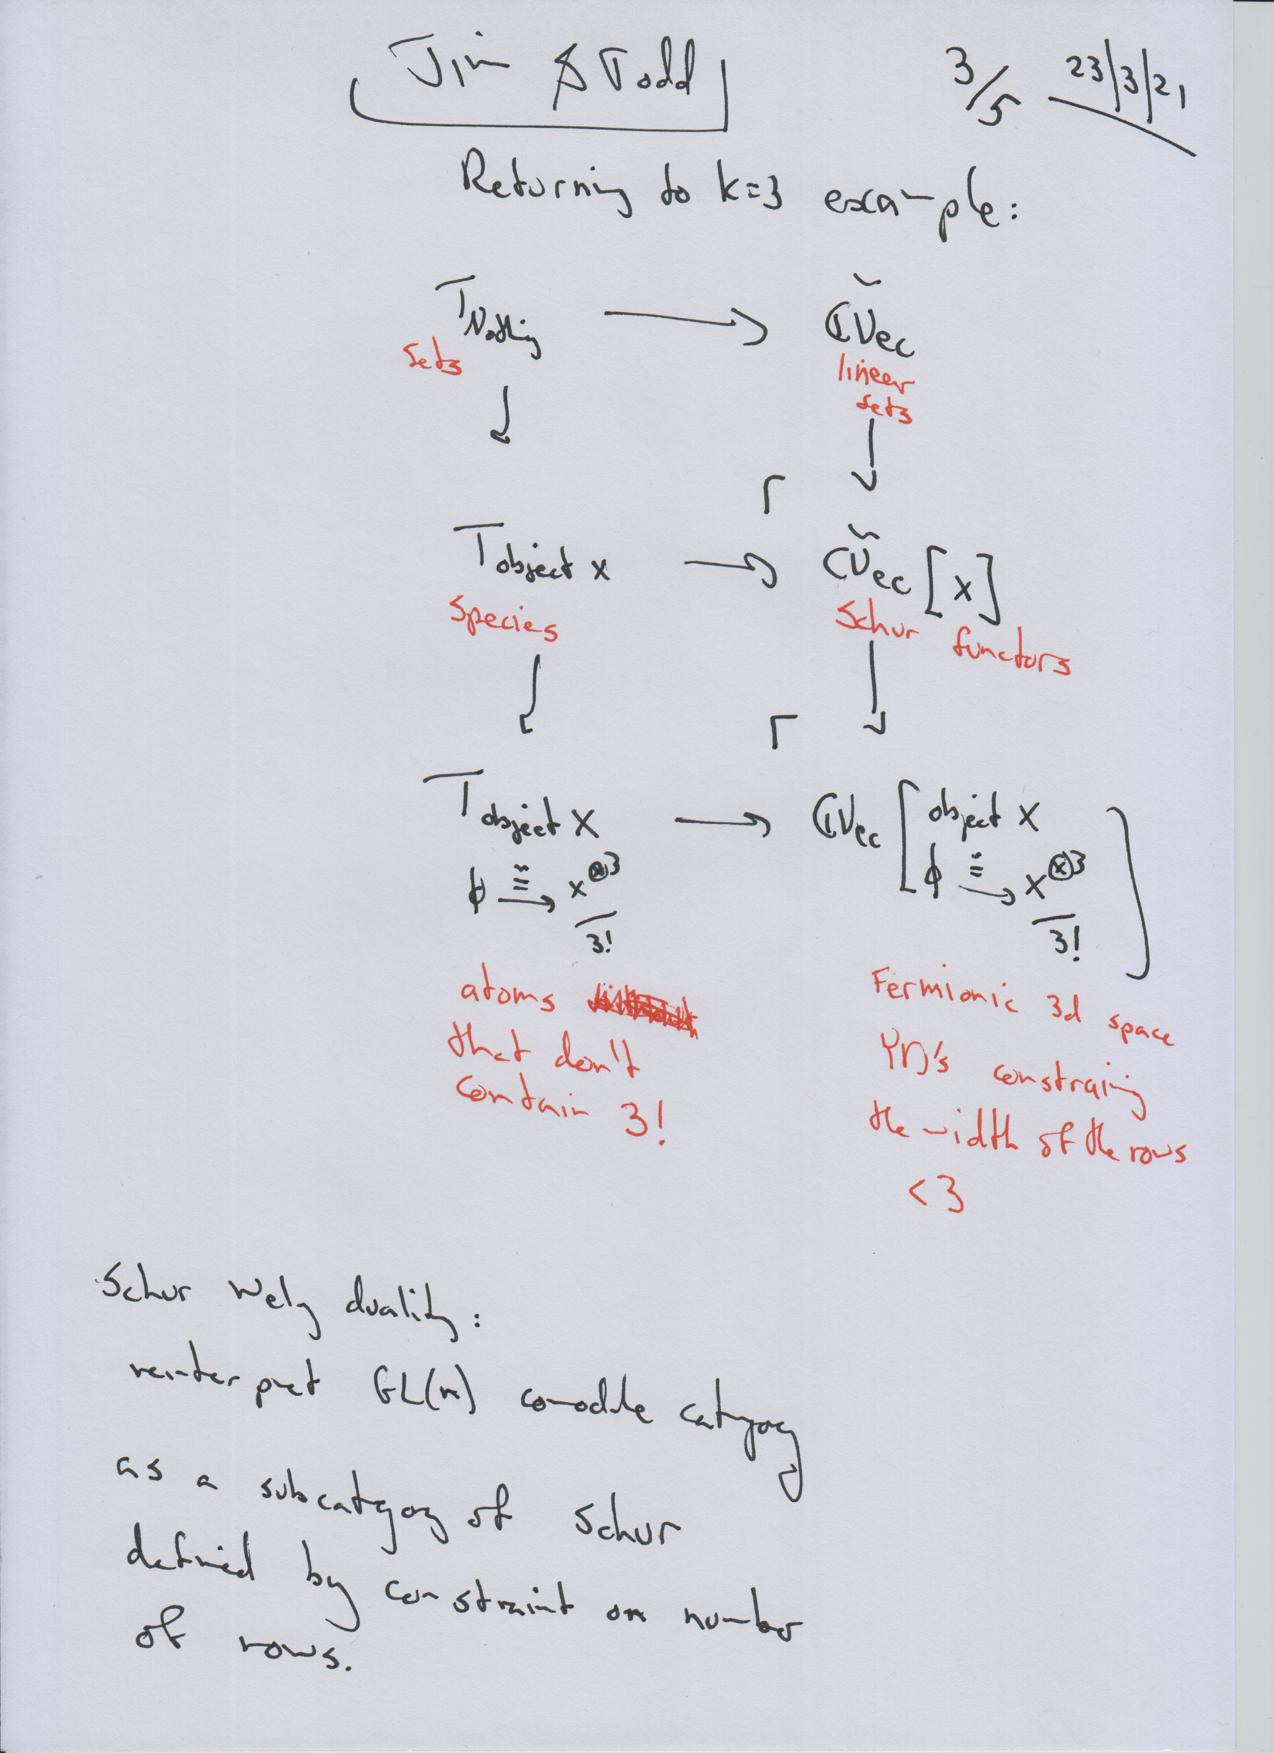 Jim & Todd 3/5 23/3/21
Returning to k=3 example:
T Nothing → ℂVec
sets linear
sets
T object x → ℂVec [x]
species Schur functors
T object x → ℂVec [object x
ϕ ≅→ x^⊗3/3! ϕ ≅→ x^⊗3/3!]
atoms Fermionic 3d space
that don't YD's constraing
contain 3! the width of the rows
< 3
Schur Wely duality:
reinterpret GL(n) comodule category
as a subcategory of Schur
defined by constraint on number
of rows.